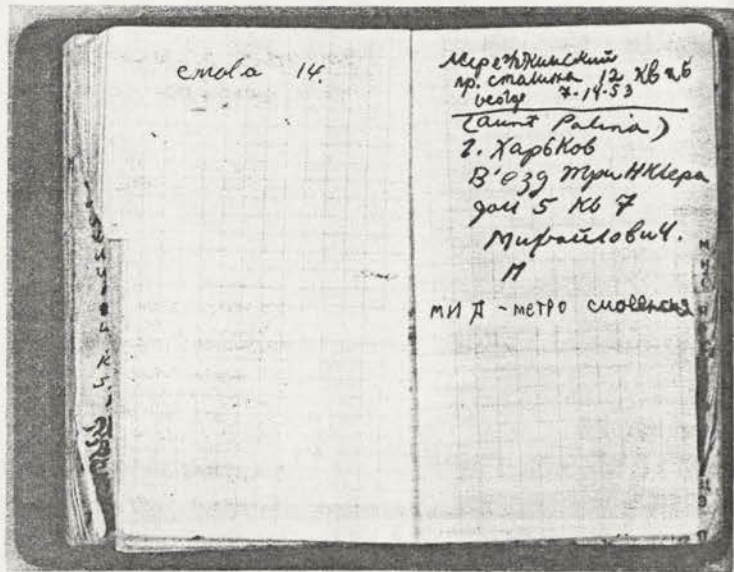 стова 14.
Мережинский
пр. сталина 12 кв 6
George 7-14-53
(aunt Polina)
г. Харьков
В'езд Тринклера
дом 5 кв 7
Михайлович.
П
МИД - метро смоленская